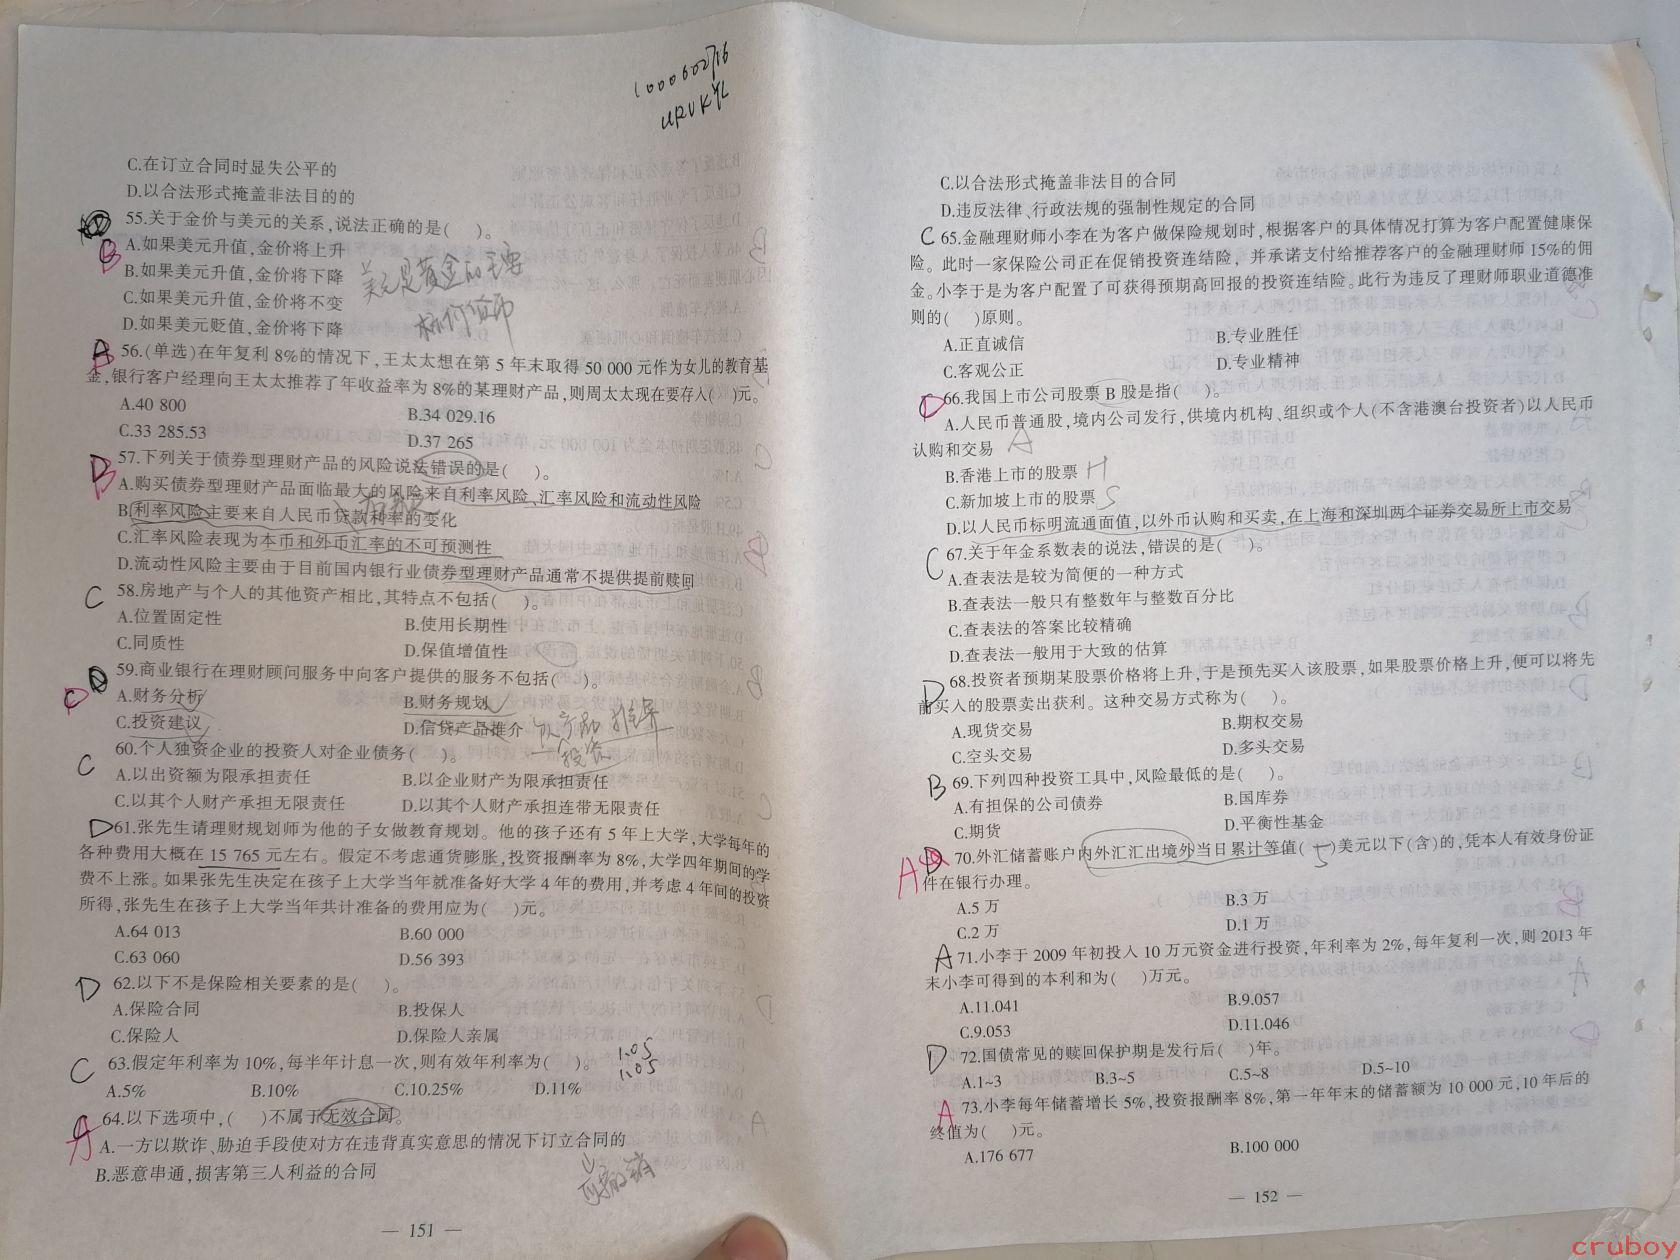 1000602716
URVKYL
C.在订立合同时显失公平的
D.以合法形式掩盖非法目的的
55.关于金价与美元的关系,说法正确的是(　)。
B
A.如果美元升值,金价将上升
B.如果美元升值,金价将下降
C.如果美元升值,金价将不变
D.如果美元贬值,金价将下降
美元是黄金的主要
标价货币
A
56.(单选)在年复利 8%的情况下,王太太想在第 5 年末取得 50 000 元作为女儿的教育基
金,银行客户经理向王太太推荐了年收益率为 8%的某理财产品,则周太太现在要存入(　)元。
A.40 800
B.34 029.16
C.33 285.53
D.37 265
B
57.下列关于债券型理财产品的风险说法错误的是(　)。
A.购买债券型理财产品面临最大的风险来自利率风险、汇率风险和流动性风险
B.利率风险主要来自人民币贷款利率的变化
C.汇率风险表现为本币和外币汇率的不可预测性
D.流动性风险主要由于目前国内银行业债券型理财产品通常不提供提前赎回
C
58.房地产与个人的其他资产相比,其特点不包括(　)。
A.位置固定性
B.使用长期性
C.同质性
D.保值增值性
D
59.商业银行在理财顾问服务中向客户提供的服务不包括(　)。
A.财务分析
B.财务规划
C.投资建议
D.信贷产品推介
产品推介
投资
C
60.个人独资企业的投资人对企业债务(　)。
A.以出资额为限承担责任
B.以企业财产为限承担责任
C.以其个人财产承担无限责任
D.以其个人财产承担连带无限责任
D
61.张先生请理财规划师为他的子女做教育规划。他的孩子还有 5 年上大学,大学每年的
各种费用大概在 15 765 元左右。假定不考虑通货膨胀,投资报酬率为 8%,大学四年期间的学
费不上涨。如果张先生决定在孩子上大学当年就准备好大学 4 年的费用,并考虑 4 年间的投资
所得,张先生在孩子上大学当年共计准备的费用应为(　)元。
A.64 013
B.60 000
C.63 060
D.56 393
D
62.以下不是保险相关要素的是(　)。
A.保险合同
B.投保人
C.保险人
D.保险人亲属
C
63.假定年利率为 10%,每半年计息一次,则有效年利率为(　)。
1.05
1.05
A.5%
B.10%
C.10.25%
D.11%
A
64.以下选项中,(　)不属于无效合同。
A.一方以欺诈、胁迫手段使对方在违背真实意思的情况下订立合同的
B.恶意串通,损害第三人利益的合同
— 151 —
C.以合法形式掩盖非法目的合同
D.违反法律、行政法规的强制性规定的合同
C
65.金融理财师小李在为客户做保险规划时,根据客户的具体情况打算为客户配置健康保
险。此时一家保险公司正在促销投资连结险，并承诺支付给推荐客户的金融理财师 15%的佣
金。小李于是为客户配置了可获得预期高回报的投资连结险。此行为违反了理财师职业道德准
则的(　)原则。
A.正直诚信
B.专业胜任
C.客观公正
D.专业精神
D
66.我国上市公司股票 B 股是指(　)。
A.人民币普通股,境内公司发行,供境内机构、组织或个人(不含港澳台投资者)以人民币
认购和交易 A
B.香港上市的股票 H
C.新加坡上市的股票 S
D.以人民币标明流通面值,以外币认购和买卖,在上海和深圳两个证券交易所上市交易
C
67.关于年金系数表的说法,错误的是(　)。
A.查表法是较为简便的一种方式
B.查表法一般只有整数年与整数百分比
C.查表法的答案比较精确
D.查表法一般用于大致的估算
D
68.投资者预期某股票价格将上升,于是预先买入该股票,如果股票价格上升,便可以将先
前买入的股票卖出获利。这种交易方式称为(　)。
A.现货交易
B.期权交易
C.空头交易
D.多头交易
B
69.下列四种投资工具中,风险最低的是(　)。
A.有担保的公司债券
B.国库券
C.期货
D.平衡性基金
A
70.外汇储蓄账户内外汇汇出境外当日累计等值( 5 )美元以下(含)的,凭本人有效身份证
件在银行办理。
A.5 万
B.3 万
C.2 万
D.1 万
A
71.小李于 2009 年初投入 10 万元资金进行投资,年利率为 2%,每年复利一次,则 2013 年
末小李可得到的本利和为(　)万元。
A.11.041
B.9.057
C.9.053
D.11.046
D
72.国债常见的赎回保护期是发行后(　)年。
A.1~3
B.3~5
C.5~8
D.5~10
A
73.小李每年储蓄增长 5%,投资报酬率 8%,第一年年末的储蓄额为 10 000 元,10 年后的
终值为(　)元。
A.176 677
B.100 000
— 152 —
cruboy